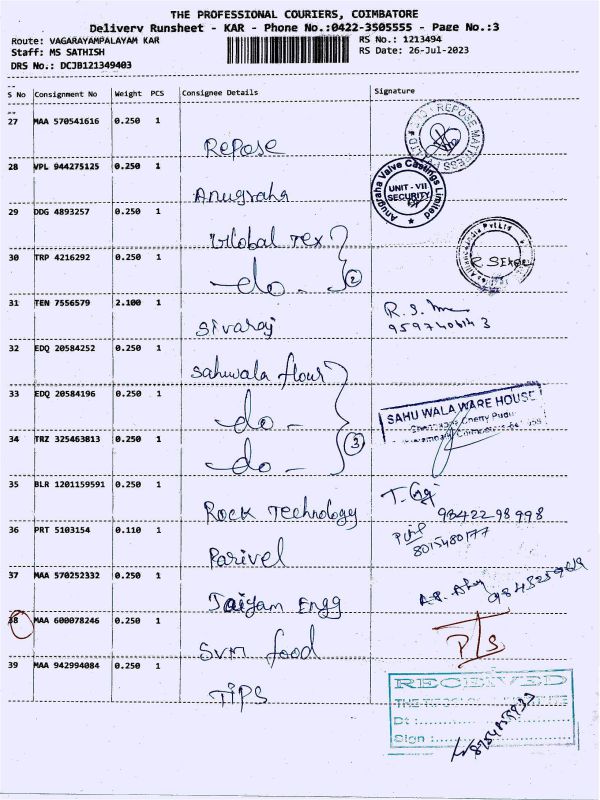 THE PROFESSIONAL COURIERS, COIMBATORE
Delivery Runsheet - KAR - Phone No.:0422-3505555 - Page No.:3
Route: VAGARAYAMPALAYAM KAR RS No.: 1213494
Staff: MS SATHISH RS Date: 26-Jul-2023
DRS No.: DCJB121349403
S No Consignment No Weight PCS Consignee Details Signature
27 MAA 570541616 0.250 1 Repose REPOSE MATTRESS
28 VPL 944275125 0.250 1 Anugraha Anugraha Valve Castings Limited UNIT - VII SECURITY
29 DDG 4893257 0.250 1 Global Tex
30 TRP 4216292 0.250 1 -do- 2 Pvt Ltd
31 TEN 7556579 2.100 1 Sivaraj R.S.
32 EDQ 20584252 0.250 1 Sahuwala flour
33 EDQ 20584196 0.250 1 -do- 3 SAHU WALA WARE HOUSE
34 TRZ 325463813 0.250 1 -do-
35 BLR 1201159591 0.250 1 Rock Technology 98422 98998
36 PRT 5103154 0.110 1 Parivel 8015480177
37 MAA 570252332 0.250 1 Taiyam Engg
38 MAA 600078246 0.250 1 SVM food P/S
39 MAA 942994084 0.250 1 TIPS RECEIVED
Dt :
Sign :